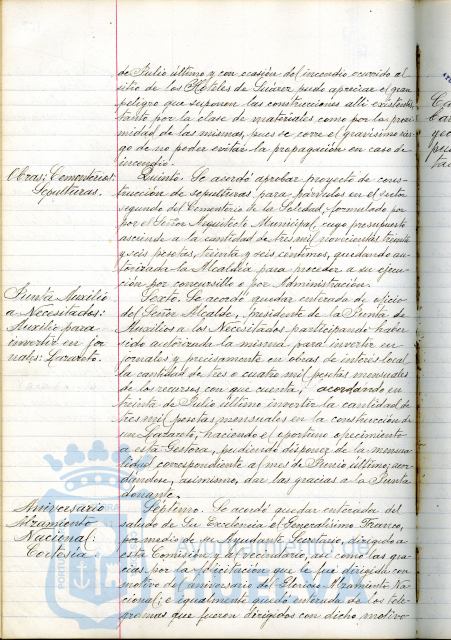 de Julio último y con ocasión del incendio ocurrido al
sitio de los Hoteles de Suárez pudo apreciar el gran
peligro que suponen las construcciones allí existentes
tanto por la clase de materiales como por la proxi-
midad de las mismas, pues se corre el gravísimo ries-
go de no poder evitar la propagación en caso de
incendio.
Obras: Cementerios:
Sepulturas.
Quinto. Se acordó aprobar proyecto de cons-
trucción de sepulturas para párvulos en el sector
segundo del Cementerio de la Soledad, formulado por
por el Señor Arquitecto Municipal cuyo presupuesto
asciende a la cantidad de tres mil novecientas treinta
y seis pesetas, treinta y seis céntimos, quedando au-
torizada la Alcaldía para proceder a su ejecu-
ción por concursillo o por Administración.
Junta Auxilio
a Necesitados:
Auxilio para
invertir en jor
nales: Lazareto.
Sexto. Se acordó quedar enterada de oficio
del Señor Alcalde, Presidente de la Junta de
Auxilios a los Necesitados participando haber
sido autorizada la misma para invertir en
jornales y precisamente en obras de interés local
la cantidad de tres o cuatro mil pesetas mensuales
de los recursos con que cuenta; acordando en
treinta de Julio último invertir la cantidad de
tres mil pesetas mensuales en la construcción de
un Lazareto, haciendo el oportuno ofrecimiento
a esta Gestora, pudiendo disponer de la mensua-
lidad correspondiente al mes de Junio último; acor-
dándose, asimismo, dar las gracias a la Junta
donante.
Aniversario
Alzamiento
Nacional:
Cortesía.
Séptimo. Se acordó quedar enterada del
saludo de Su Excelencia el Generalísimo Franco,
por medio de su Ayudante Secretario, dirigido a
esta Comisión y al vecindario, así como las gra-
cias por la felicitación que le fué dirigida con
motivo del aniversario del Glorioso Alzamiento Na-
cional; e igualmente quedó enterada de los tele-
gramas que fueron dirigidos con dicho motivo